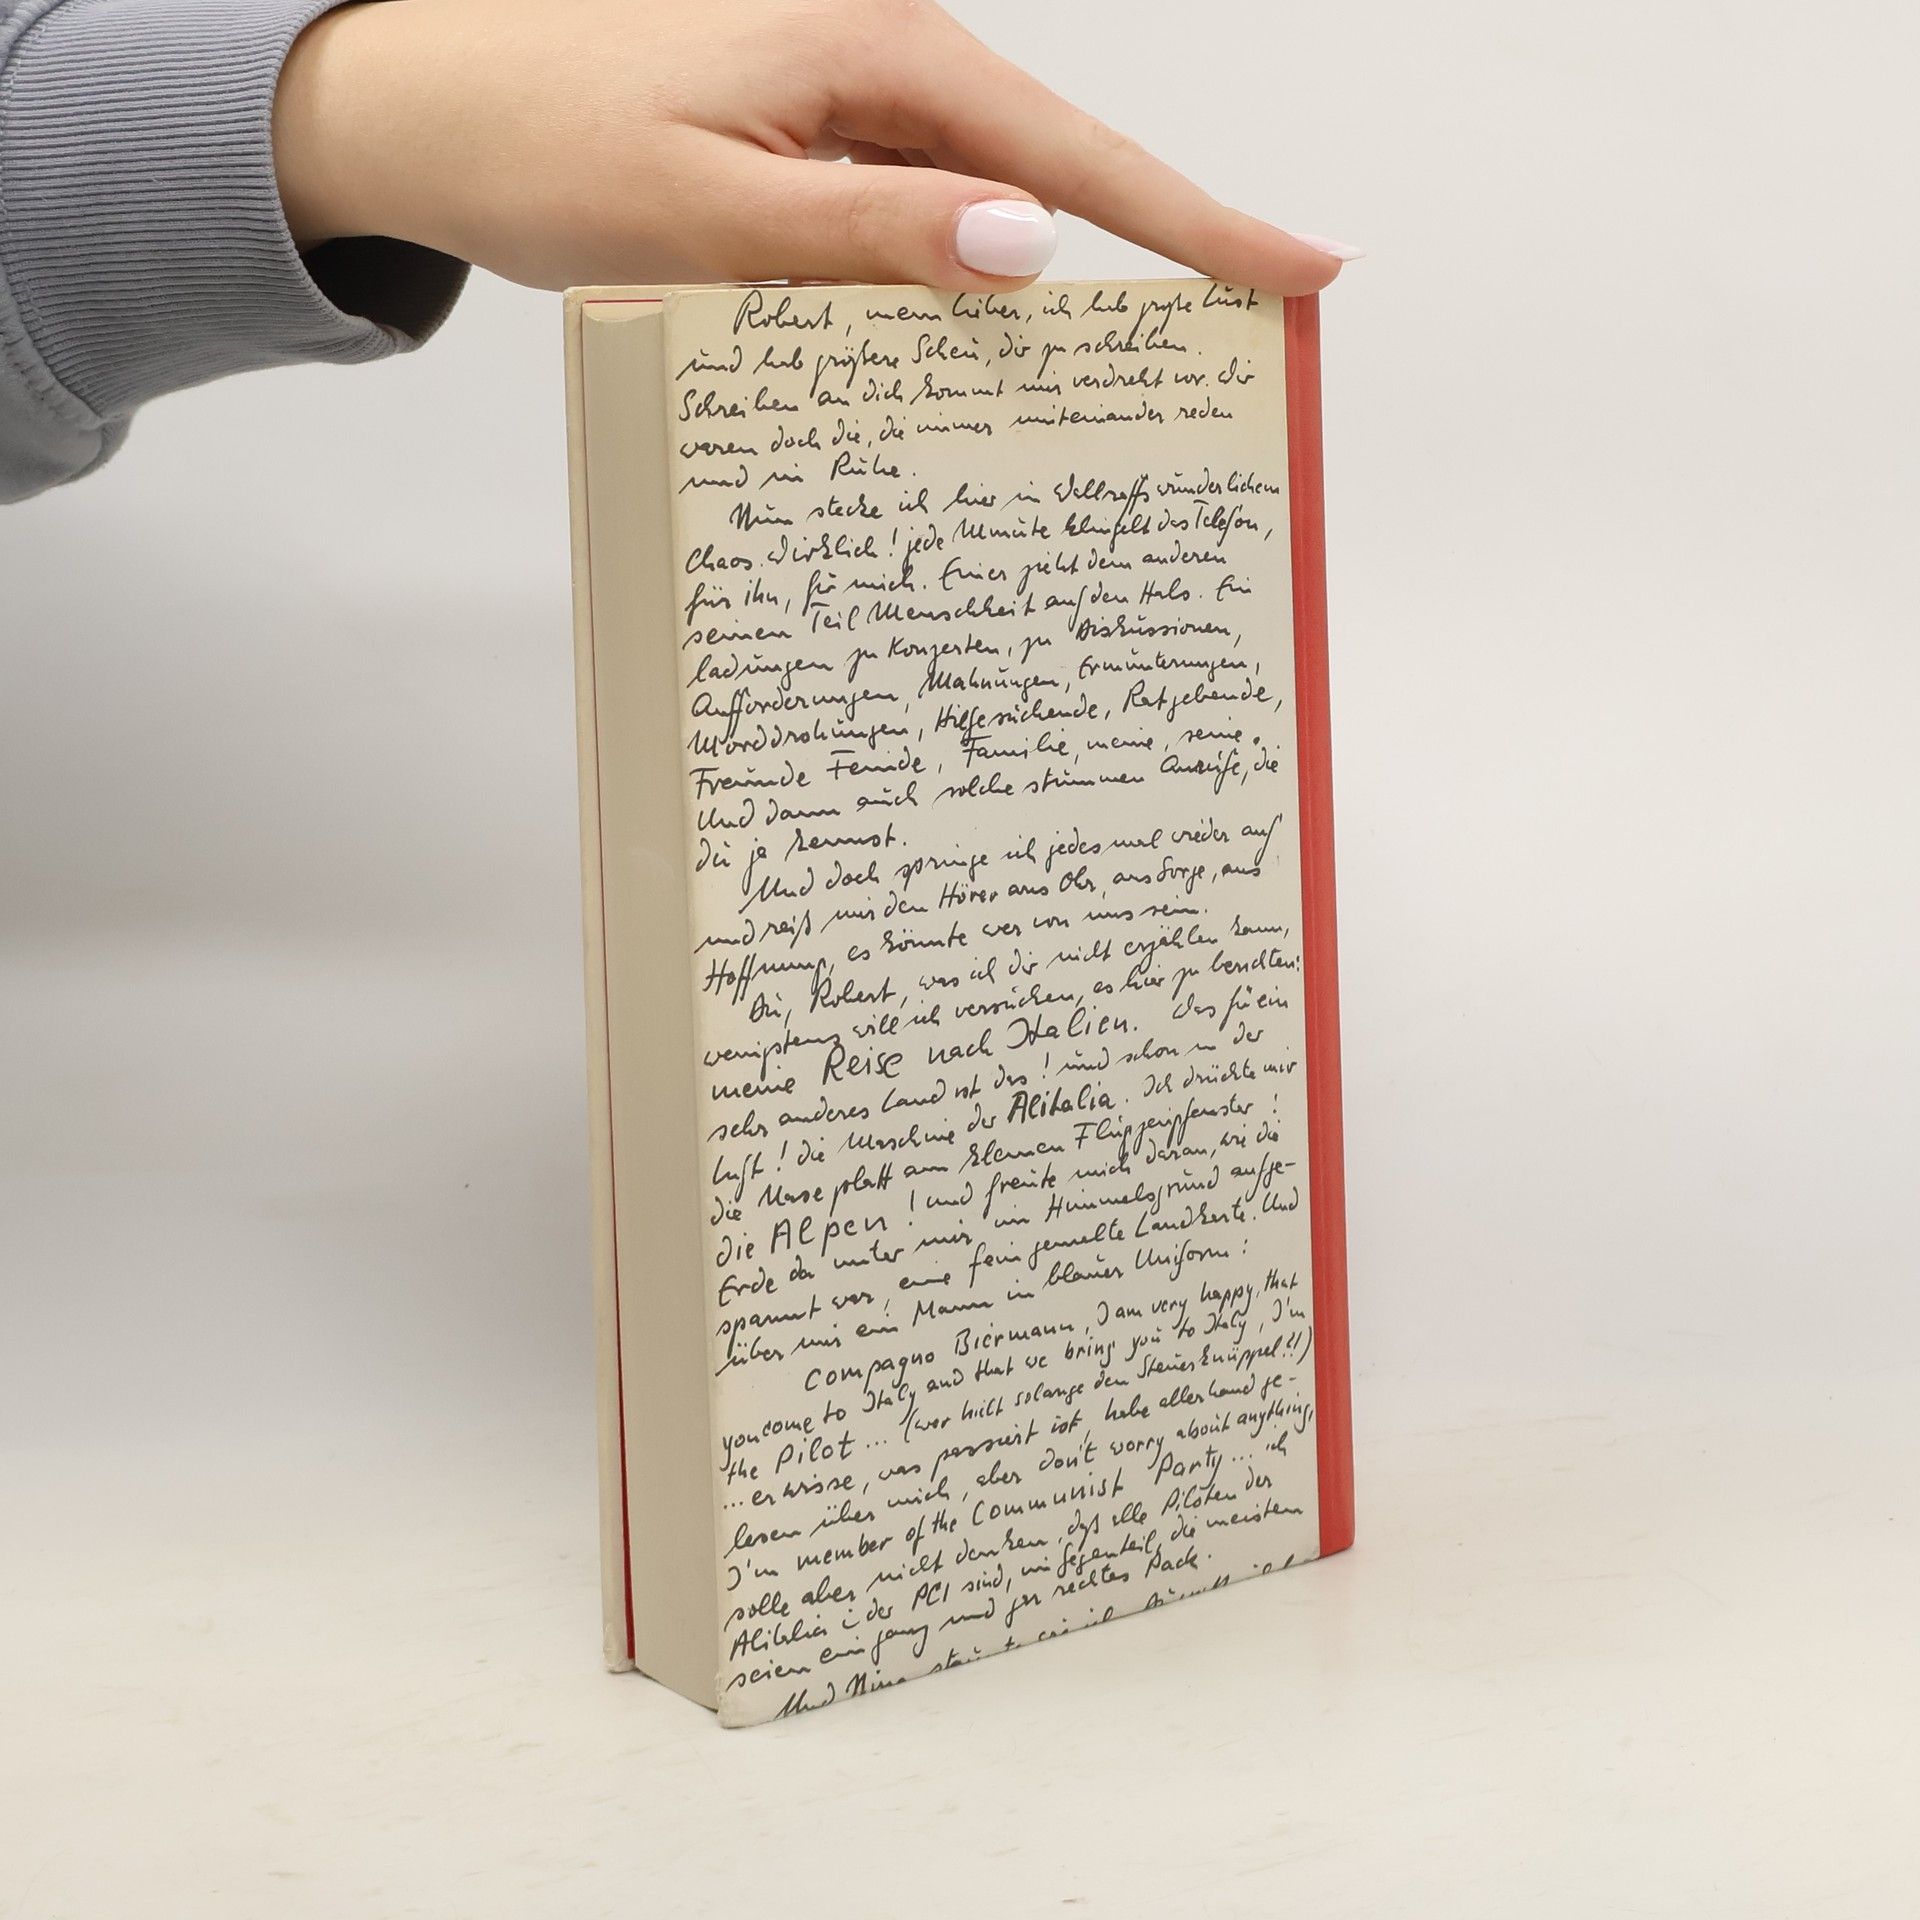 Robert, mein lieber, ich hab große Lust
und hab größere Scheu, dir zu schreiben.
Schreiben an dich kommt mir verdreht vor. Wir
waren doch die, die immer miteinander reden
und in Ruhe.
Nun stecke ich hier in Wallraffs wunderlichem
Chaos. Wirklich! jede Minute klingelt das Telefon,
für ihn, für mich. Einer zieht dem anderen
seinen Teil Menschheit auf den Hals. Ein
ladungen zu Konzerten, zu Diskussionen,
Aufforderungen, Mahnungen, Ermunterungen,
Morddrohungen, Hilfesuchende, Ratgebende,
Freunde Feinde, Familie, meine, seine.
Und dann auch solche stummen Anrufe, die
du ja kennst.
Und doch springe ich jedesmal wieder auf
und reiß mir den Hörer ans Ohr, aus Sorge, aus
Hoffnung, es könnte wer von uns sein.
Du, Robert, was ich dir nicht erzählen kann,
wenigstens will ich versuchen, es hier zu berichten:
meine Reise nach Italien. Was für ein
sehr anderes Land ist das! und schon in der
Luft! die Maschine der Alitalia. Ich drückte mir
die Nase platt am kleinen Flugzeugfenster!
die Alpen! und freute mich daran, wie die
Erde da unter mir im Himmelsgrund aufge-
spannt war, eine fein gemalte Landkarte. Und
über mir ein Mann in blauer Uniform:
Compagno Biermann, I am very happy, that
you come to Italy and that we bring you to Italy, I'm
the Pilot... (wer hielt solange den Steuerknüppel?!)
... er wisse, was passiert ist, habe allerhand ge-
lesen über mich, aber don't worry about anything,
I'm member of the Communist Party... ich
solle aber nicht denken, daß alle Piloten der
Alitalia in der PCI sind, im Gegenteil, die meisten
seien ein ganz und gar rechtes Pack.
Und Nina